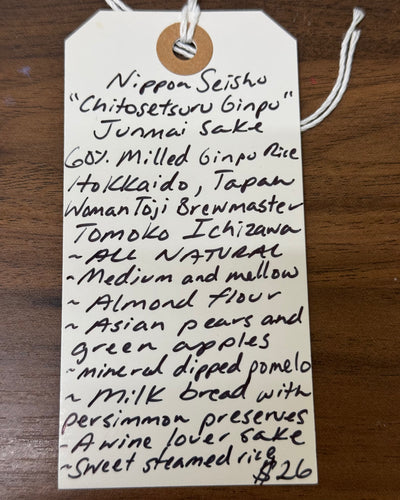 Nippon Seishu
"Chitosetsuru Ginpu"
Junmai Sake
60% Milled Ginpu Rice
Hokkaido, Japan
Woman Toji Brewmaster
Tomoko Ichizawa
~ ALL NATURAL
~ Medium and mellow
~ Almond flour
~ Asian pears and
green apples
~ mineral dipped pomelo
~ Milk bread with
persimmon preserves
~ A wine lover sake
~ Sweet steamed rice
$26